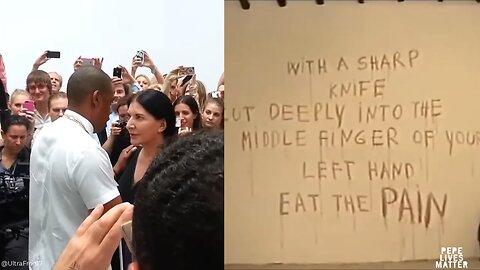 WITH A SHARP
KNIFE
CUT DEEPLY INTO THE
MIDDLE FINGER OF YOUR
LEFT HAND
EAT THE PAIN
PEPE
LIVES
MATTER